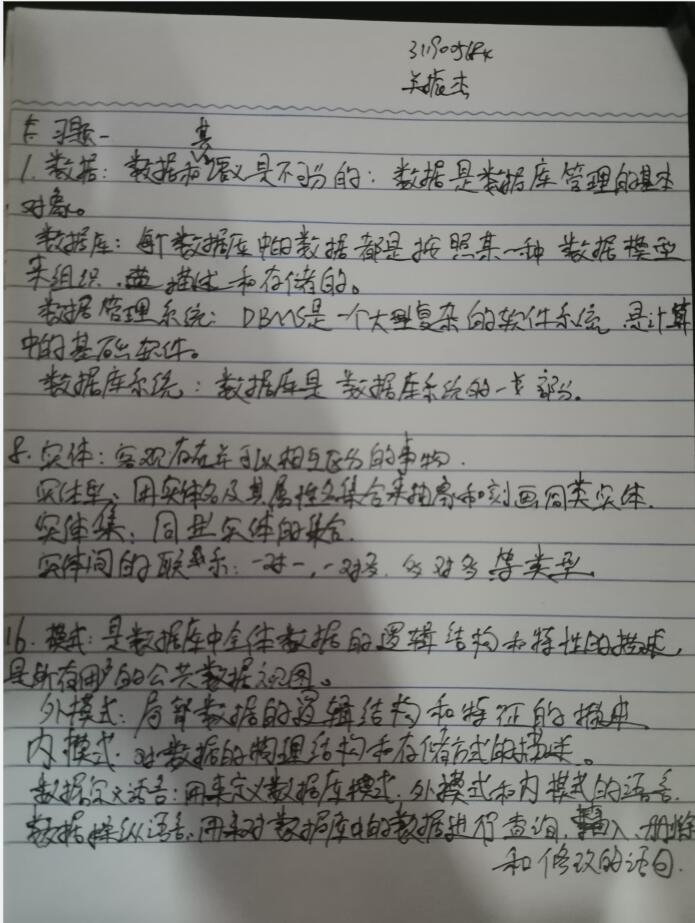 关振杰
习题一
1. 数据：数据和其语义是不可分的；数据是数据库管理的基本
对象。
数据库：每个数据库中的数据都是按照某一种数据模型
来组织、描述和存储的。
数据管理系统：DBMS是一个大型复杂的软件系统，是计算
中的基础软件。
数据库系统：数据库是数据库系统的一部分。
8. 实体：客观存在并可以相互区分的事物.
实体型：用实体名及其属性名集合来抽象和刻画同类实体.
实体集：同型实体的集合.
实体间的联系：一对一，一对多，多对多等类型.
16. 模式：是数据库中全体数据的逻辑结构和特性的描述，
是所有用户的公共数据视图。
外模式：局部数据的逻辑结构和特征的描述
内模式：对数据的物理结构和存储方式的描述。
数据定义语言：用来定义数据库模式、外模式和内模式的语言.
数据操纵语言：用来对数据库中的数据进行查询、入、删除
和修改的语句.